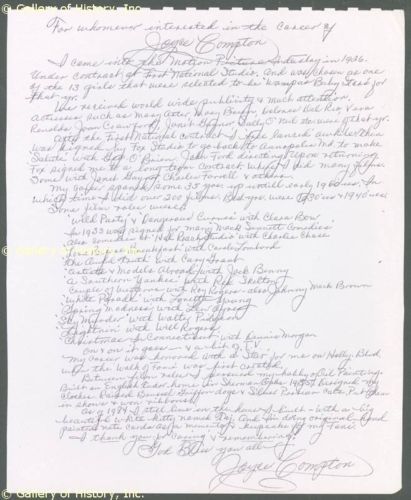 © Gallery of History, Inc.
For whomever interested in the career of
Joyce Compton
I came into the Motion Picture Industry in 1926.
Under contract at First National Studio. And was chosen as one
of the 13 girls that were selected to be Wampas Baby Stars for
that yr.
We received world wide publicity & much attention.
actresses such as Mary Astor, Mary Brian, Dolores Del Rio &
Joan Crawford, Janet Gaynor, were of that yr.
After the First National contract I free lanced awhile then
was signed by Fox Studio to go back to Annapolis Md. to make
Salute with Geo. O'Brien. John Ford directing. Upon returning
Fox signed me to a long term contract which I did many films.
Some with Janet Gaynor, Charles Farrell & others.
My career spanned some 35 years up until early 1960 ies. In
which time I did over 200 films. 1930 ies & 1940 ies
Some film roles were:
Wild Party & Dangerous Curves with Clara Bow
In 1933 was signed for many Mack Sennett Comedies
also some at Hal Roach Studio with Charlie Chase
with Carole Lombard
The Awful Truth with Cary Grant
Artists & Models Abroad with Jack Benny
A Southern Yankee with Red Skelton
Couple of Westerns with Roy Rogers also Johnny Mack Brown
White Parade with Loretta Young
Spring Madness with Lew Ayres
Sky Murder with Walter Pidgeon
Lightnin' with Will Rogers
Christmas in Connecticut with Dennis Morgan
On & on it goes - & a bit of T.V.
My career was honored with a Star for me on Hollywd. Blvd.
when the Walk of Fame was first created.
Between film roles I pursued my hobby of Oil Painting.
Built an English tudor home in Sherman Oaks 1935. Designed my
clothes. Raised Brussel Griffon dogs & Silver Persian Cats. Put them
in shows & won ribbons.
As of 1984 I still live in the house I built - with a big
beautiful white kitty named And am doing original
painted note cards as a memento & keepsake for my fans.
I thank you for caring & remembering!
God Bless you all -
Joyce Compton
© Gallery of History, Inc.